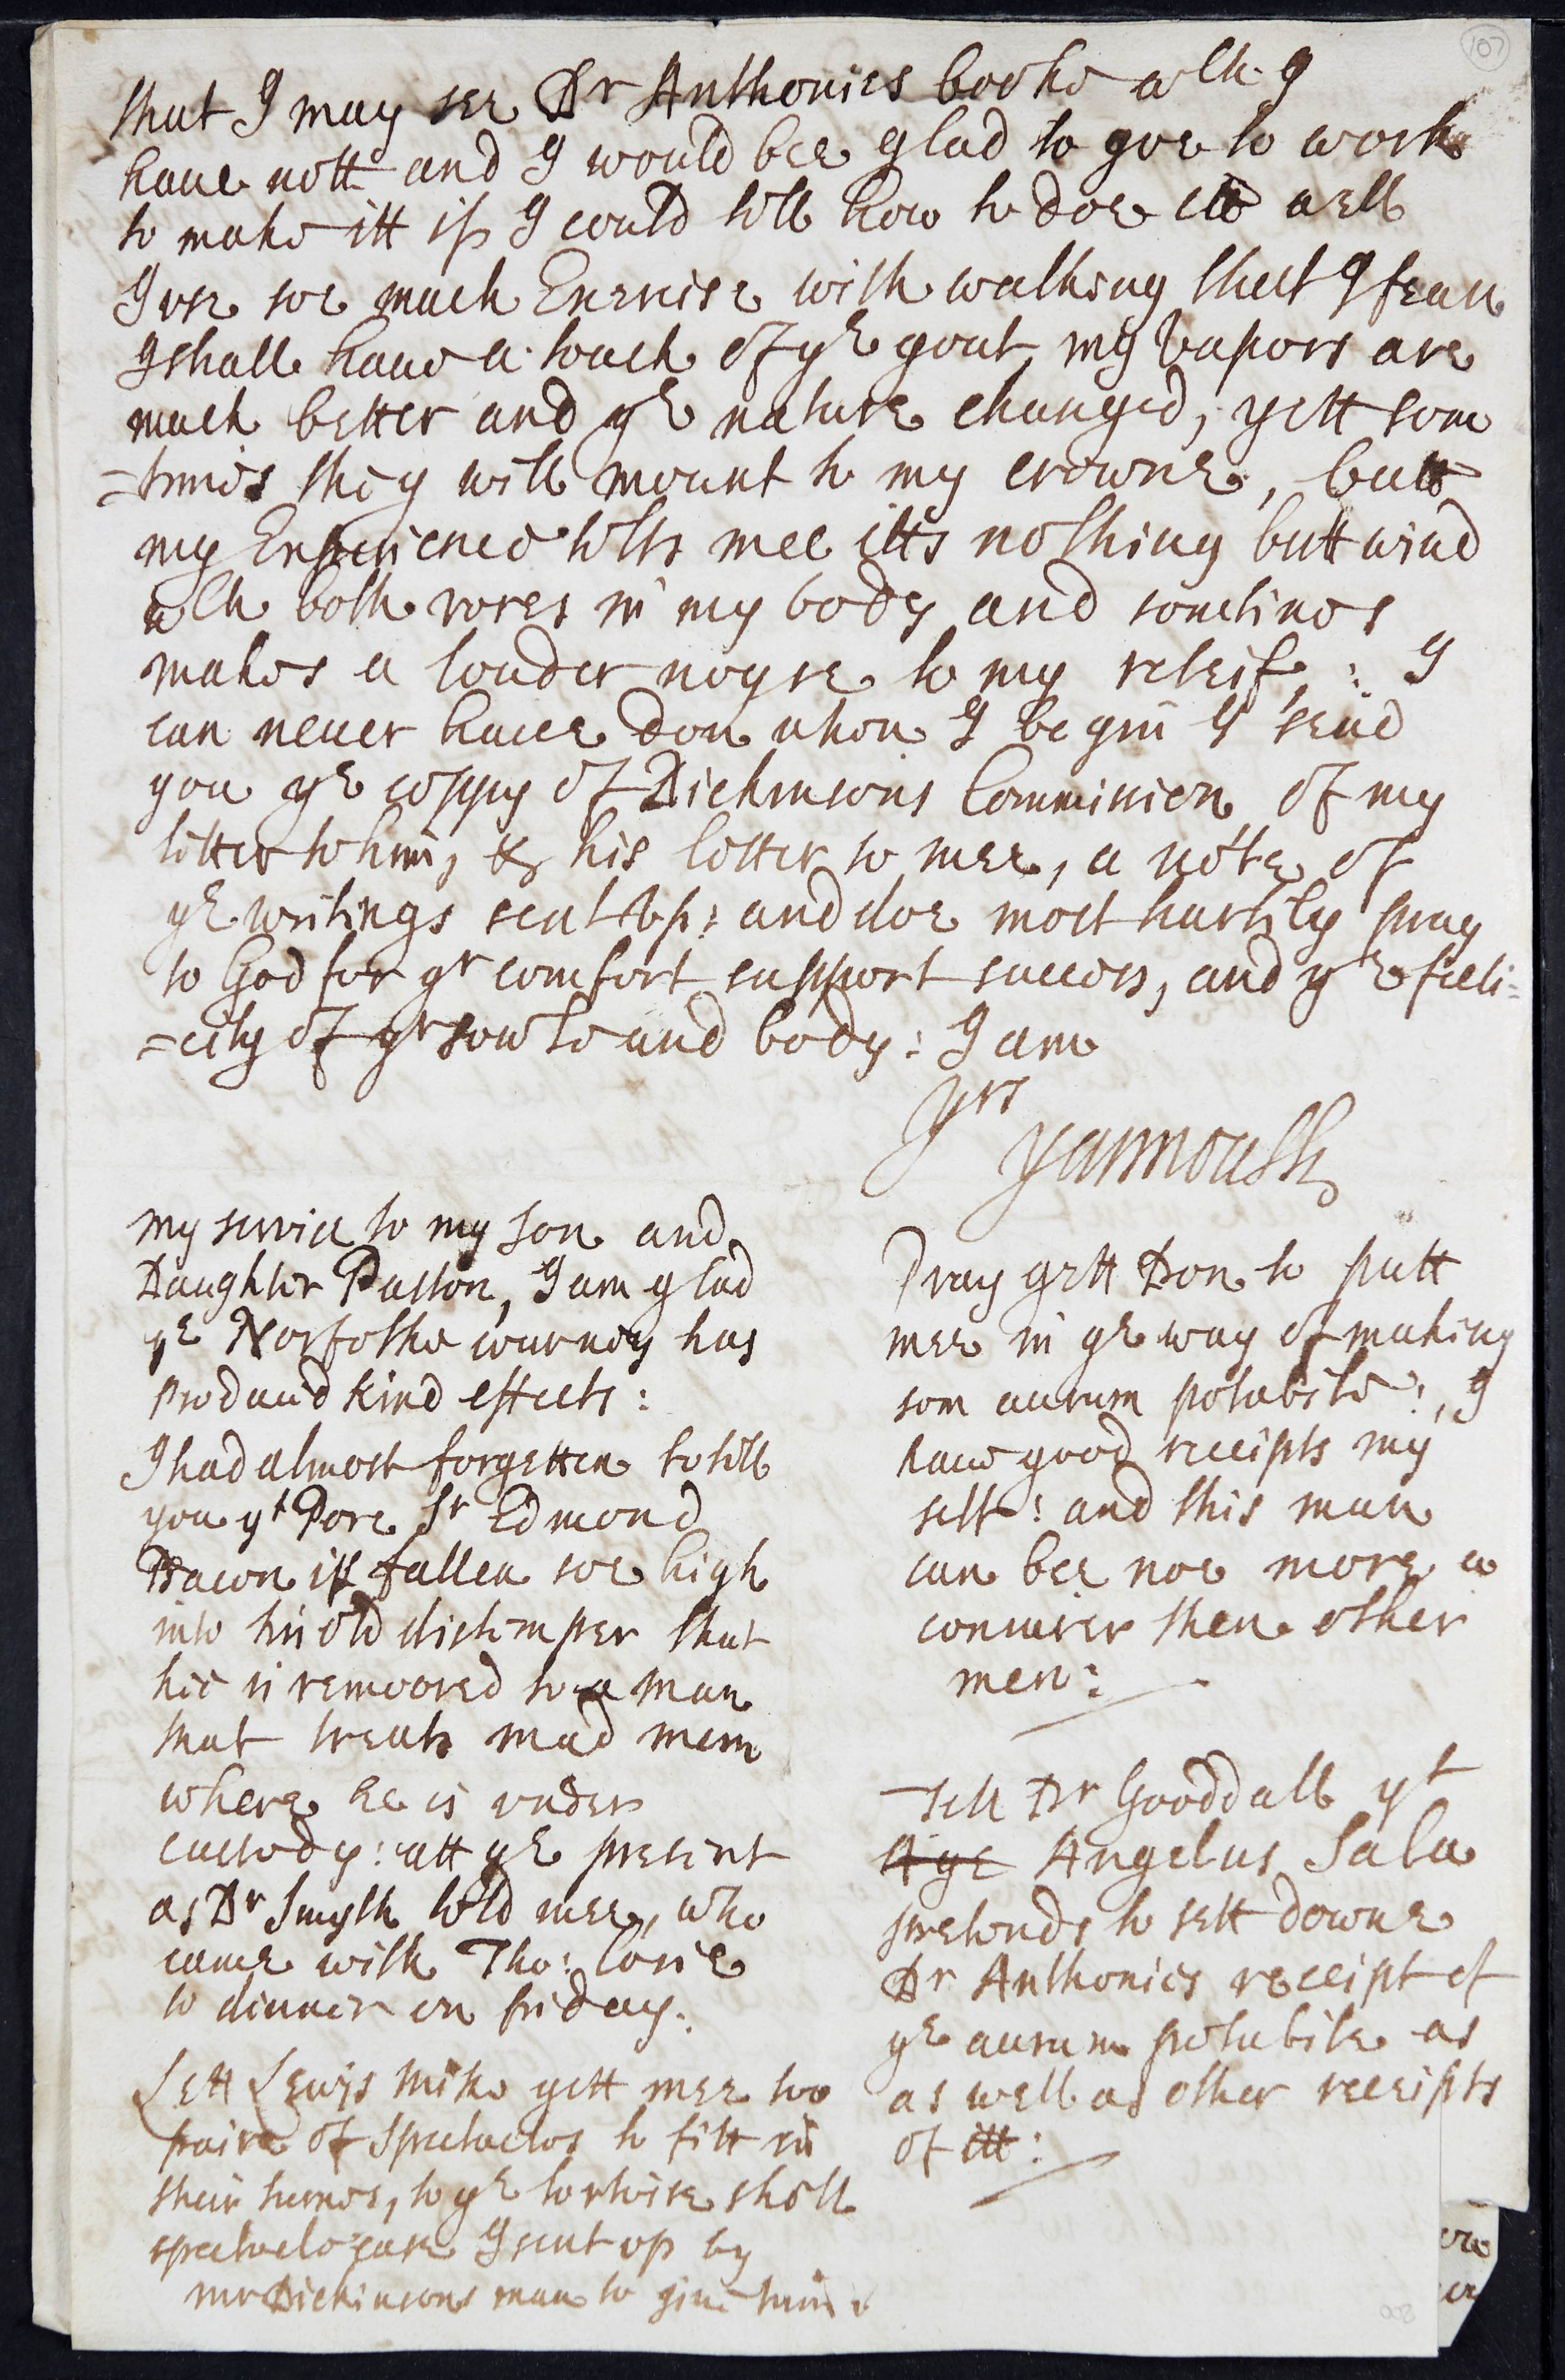 107
that I may see Dr Anthonies booke wch I
haue nott and I would bee glad to goe to worke
to make itt if I could tell how to doe itt well
I vse soe much Exercise with walking that I fear
I shall haue a touch of ye gout, my vapors are
much better and ye nature changed, yett som
=times they will mount to my crowne, butt
my Experience tells mee itts nothing butt wind
wch both rores in my body and somtimes
makes a louder noyse to my releif: I
can neuer haue don when I begin I send
you ye coppy of Dickinsons Commission of my
letter to him, & his letter to mee, a note of
ye writings sent vp: and doe most hartily pray
to God for yr comfort support succes, and ye feli=
=city of yr sowle and body: I am
yrs
Yarmouth
my seruice to my son and
Daughter Paston, I am glad
ye Norfolke iourney has
producd kind effects:
I had almost forgetten to tell
you yt Pore Sr Edmond
Bacon is fallen soe high
into his old distemper that
hee is remooved to a man
that treats mad men
where he is vnder
custody: att ye present
as Dr Smyth told mee, who
came with Tho: Corie
to dinner on friday.
Lett Lewis make gett mee two
paire of Spectacles to fitt in
their turnes, to ye tortoise shell
spectacle case I sent vp by
mr Dickinsons man to giue him
Pray gett Don to putt
mee in ye way of making
som aurum potabile:, I
haue good receipts my
self: and this man
can bee noe more a
coniurer then other
men:
Tell Dr Gooddall yt
Age Angelus Sala
pretends to sett downe
Dr Anthonies receipt of
ye aurum potabile as
as well as other receipts
of itt: